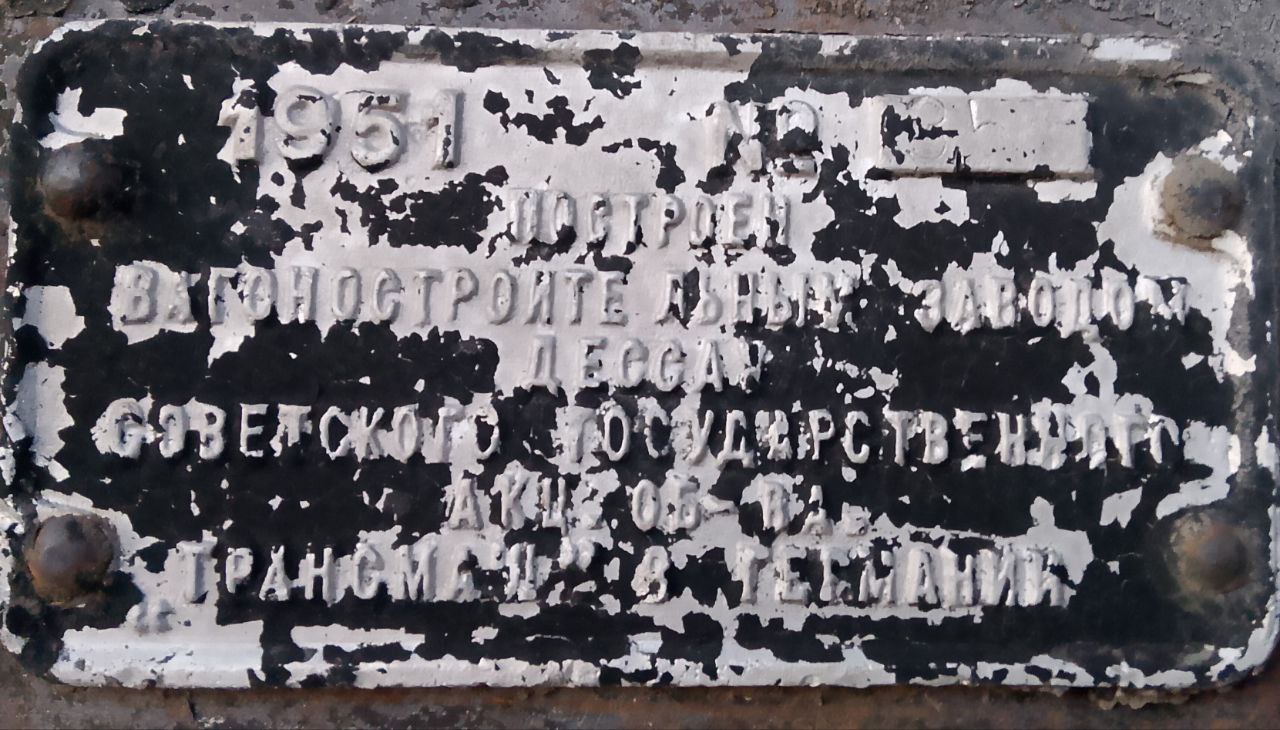 1951 №
ПОСТРОЕН
ВАГОНОСТРОИТЕЛЬНЫМ ЗАВОДОМ
ДЕССАУ
СОВЕТСКОГО ГОСУДАРСТВЕННОГО
АКЦ. ОБ-ВА
ТРАНСМАШ" В ГЕРМАНИИ